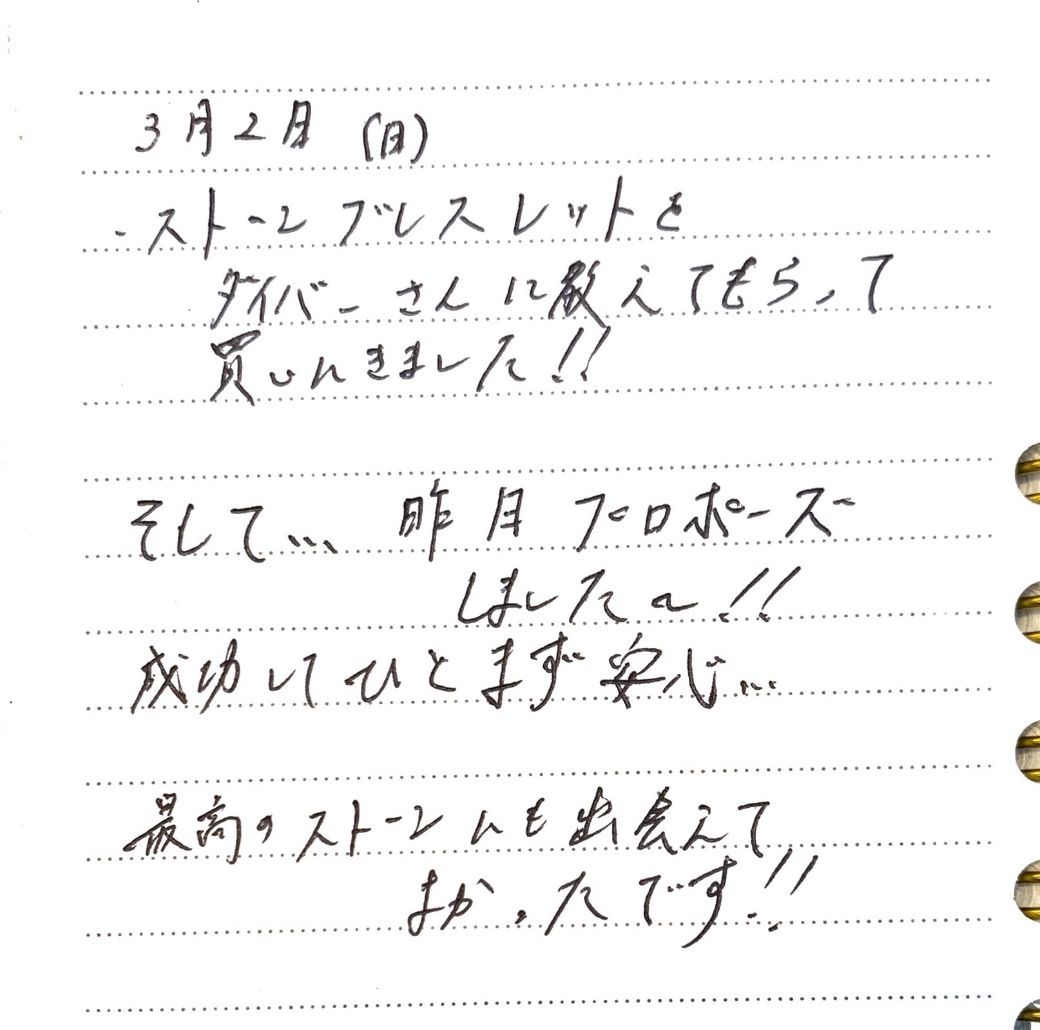 3月2日 (日)
・ストーンブレスレットを
ダイバーさんに教えてもらって
買いにきました!!
そして... 昨日プロポーズ
しました〜!!
成功してひとまず安心...
最高のストーンにも出会えて
よかったです!!